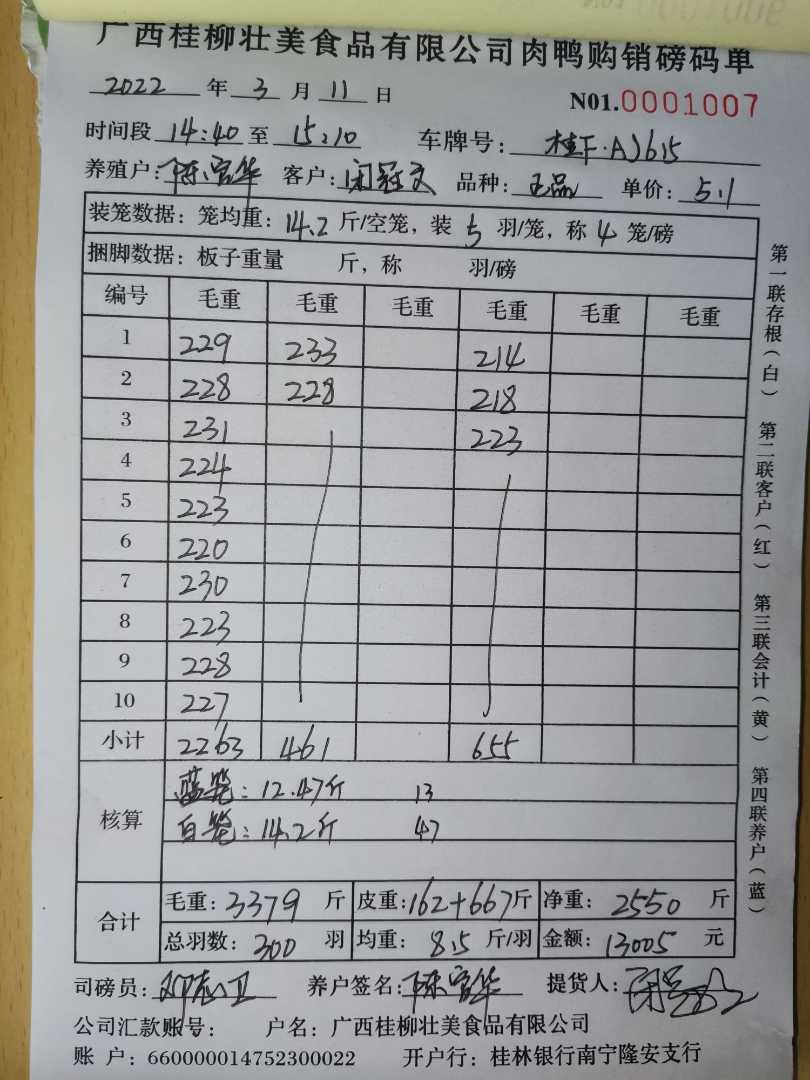 广西桂柳壮美食品有限公司肉鸭购销磅码单
2022 年 3 月 11 日 N01.0001007
时间段 14:40 至 15:10 车牌号: 桂F·AJ615
养殖户: 陈富华 客户: 闭冠文 品种: 王品 单价: 5.1
装笼数据: 笼均重: 14.2 斤/空笼, 装 5 羽/笼, 称 4 笼/磅
捆脚数据: 板子重量 斤, 称 羽/磅
编号 毛重 毛重 毛重 毛重 毛重 毛重
1 229 233 214
2 228 228 218
3 231 223
4 224
5 223
6 220
7 230
8 223
9 228
10 227
小计 2263 461 655
核算
蓝笼: 12.47斤 13
白笼: 14.2斤 47
合计
毛重: 3379 斤 皮重: 162+667斤 净重: 2550 斤
总羽数: 300 羽 均重: 8.5 斤/羽 金额: 13005 元
司磅员: 养户签名: 陈富华 提货人:
公司汇款账号: 户名: 广西桂柳壮美食品有限公司
账 户: 660000014752300022 开户行: 桂林银行南宁隆安支行
第一联存根(白) 第二联客户(红) 第三联会计(黄) 第四联养户(蓝)